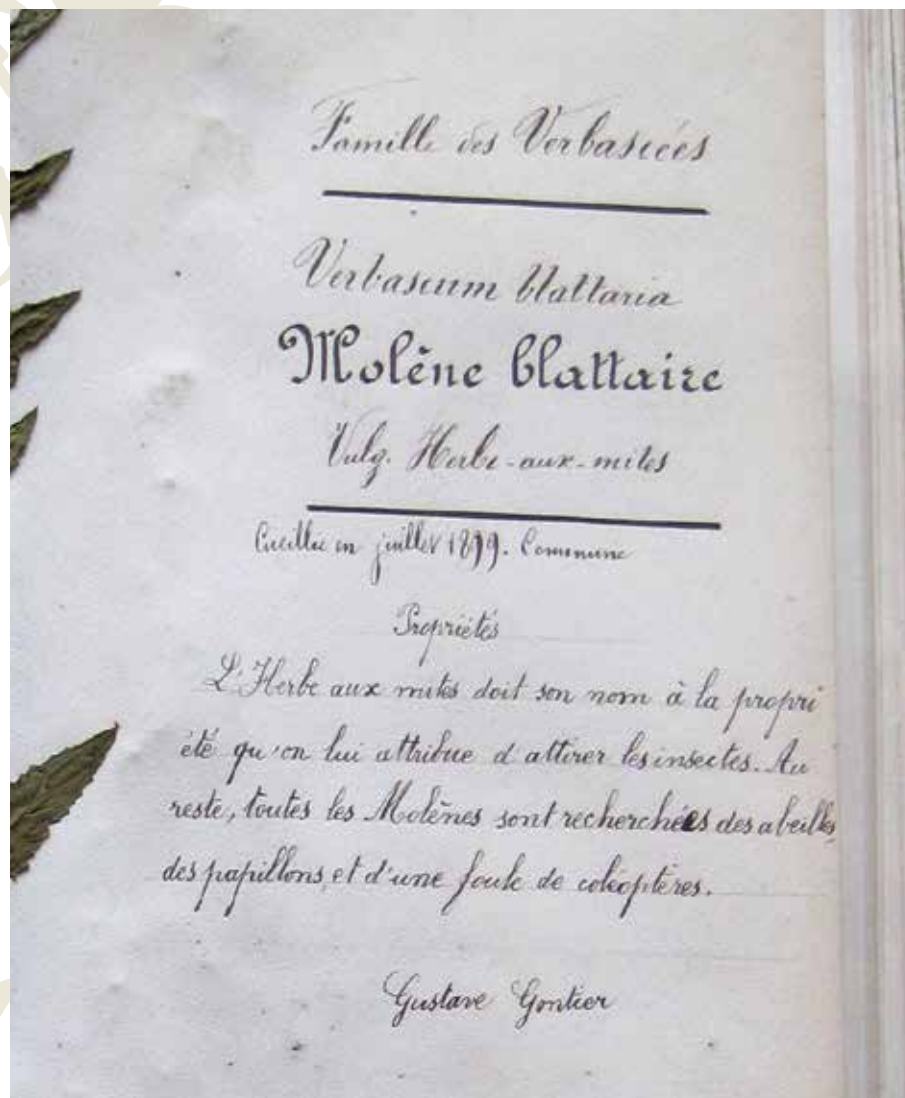 Famille des Verbascées
Verbascum blattaria
Molène blattaire
Vulg. Herbe-aux-mites
Cueillie en juillet 1899. Commune
Propriétés
L'Herbe aux mites doit son nom à la propri
été qu'on lui attribue d'attirer les insectes. Au
reste, toutes les Molènes sont recherchées des abeilles,
des papillons, et d'une foule de coléoptères.
Gustave Gontier